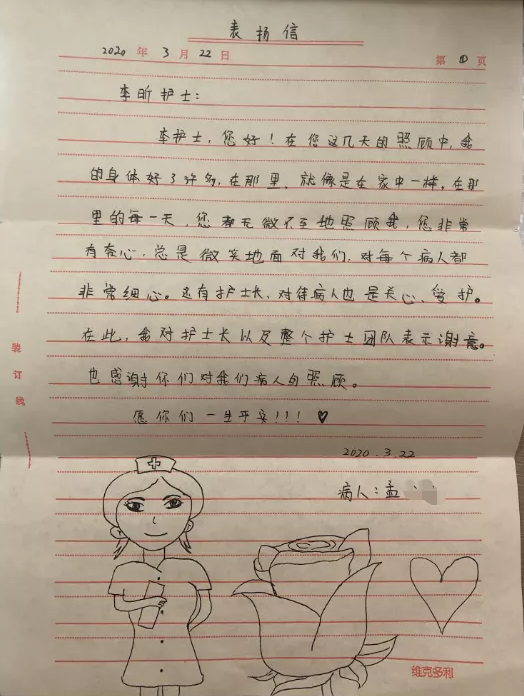 表扬信
2020 年 3 月 22 日 第 ① 页
李昕护士:
李护士,您好!在您这几天的照顾中,我
的身体好了许多,在那里,就像是在家中一样,在那
里的每一天,您都无微不至地照顾我,您非常
有耐心,总是微笑地面对我们,对每个病人都
非常细心。还有护士长,对待病人也是关心、爱护。
在此,我对护士长以及整个护士团队表示谢意。
也感谢你们对我们病人的照顾。
愿你们一生平安!!!
2020.3.22
病人:孟
装订线
维克多利